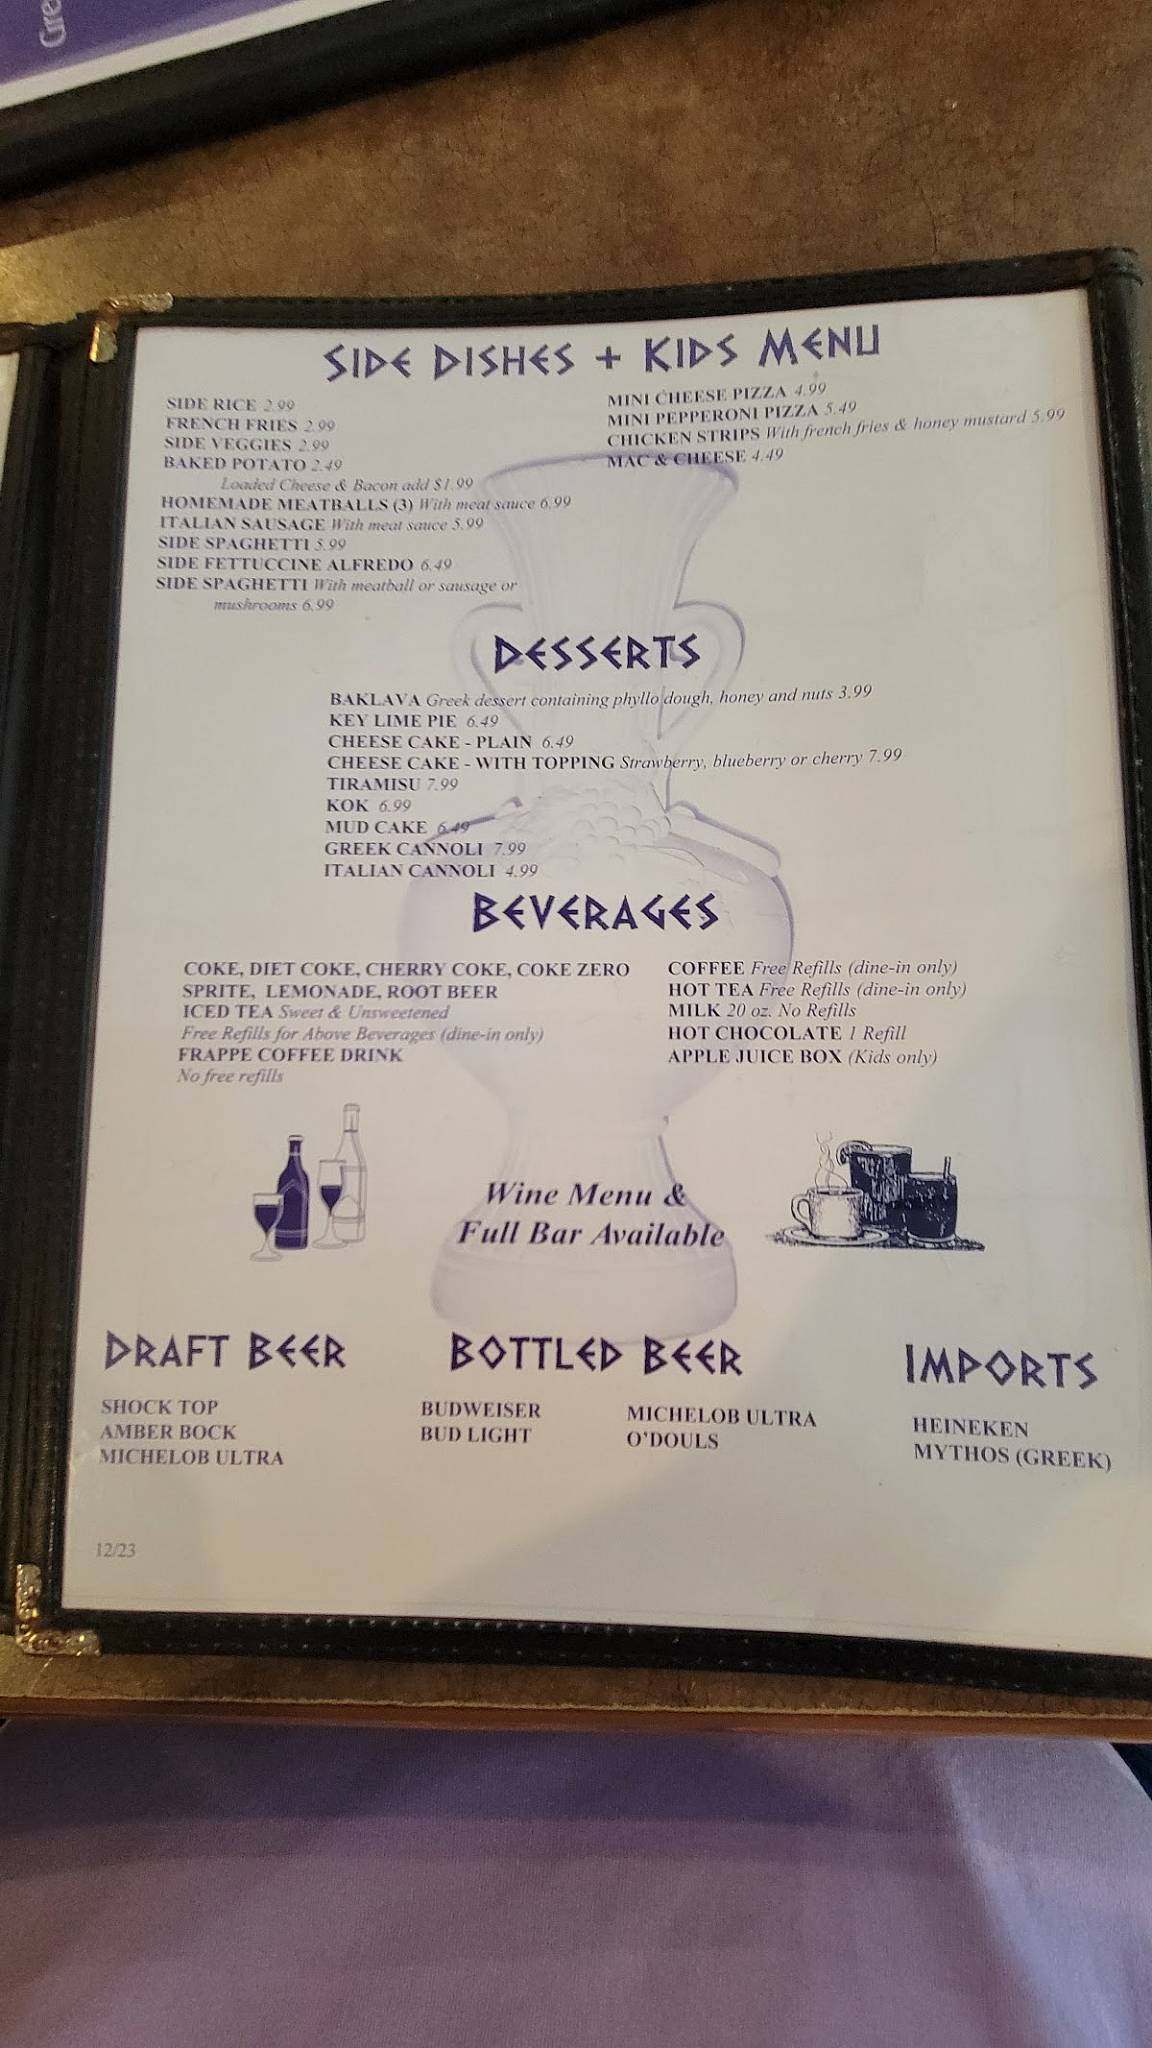 Gre
SIDE DISHES + KIDS MENU
SIDE RICE 2.99
FRENCH FRIES 2.99
SIDE VEGGIES 2.99
BAKED POTATO 2.49
Loaded Cheese & Bacon add $1.99
HOMEMADE MEATBALLS (3) With meat sauce 6.99
ITALIAN SAUSAGE With meat sauce 5.99
SIDE SPAGHETTI 5.99
SIDE FETTUCCINE ALFREDO 6.49
SIDE SPAGHETTI With meatball or sausage or
mushrooms 6.99
MINI CHEESE PIZZA 4.99
MINI PEPPERONI PIZZA 5.49
CHICKEN STRIPS With french fries & honey mustard 5.99
MAC & CHEESE 4.49
DESSERTS
BAKLAVA Greek dessert containing phyllo dough, honey and nuts 3.99
KEY LIME PIE 6.49
CHEESE CAKE - PLAIN 6.49
CHEESE CAKE - WITH TOPPING Strawberry, blueberry or cherry 7.99
TIRAMISU 7.99
KOK 6.99
MUD CAKE 6.49
GREEK CANNOLI 7.99
ITALIAN CANNOLI 4.99
BEVERAGES
COKE, DIET COKE, CHERRY COKE, COKE ZERO
SPRITE, LEMONADE, ROOT BEER
ICED TEA Sweet & Unsweetened
Free Refills for Above Beverages (dine-in only)
FRAPPE COFFEE DRINK
No free refills
COFFEE Free Refills (dine-in only)
HOT TEA Free Refills (dine-in only)
MILK 20 oz. No Refills
HOT CHOCOLATE 1 Refill
APPLE JUICE BOX (Kids only)
Wine Menu &
Full Bar Available
DRAFT BEER
SHOCK TOP
AMBER BOCK
MICHELOB ULTRA
BOTTLED BEER
BUDWEISER
BUD LIGHT
MICHELOB ULTRA
O'DOULS
IMPORTS
HEINEKEN
MYTHOS (GREEK)
12/23